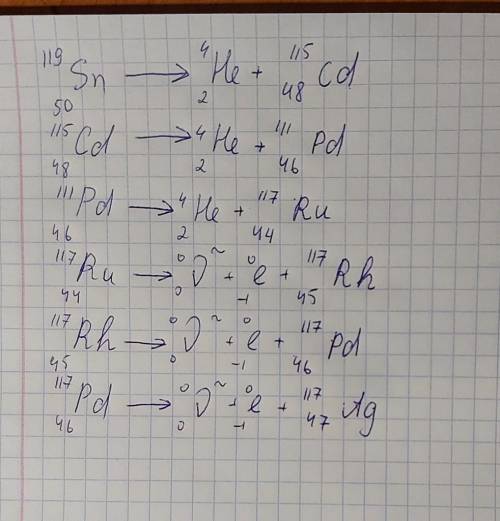 ¹¹⁹₅₀Sn → ⁴₂He + ¹¹⁵₄₈Cd
¹¹⁵₄₈Cd → ⁴₂He + ¹¹¹₄₆Pd
¹¹¹₄₆Pd → ⁴₂He + ¹¹⁷₄₄Ru
¹¹⁷₄₄Ru → ⁰₀ν̃ + ⁰₋₁e + ¹¹⁷₄₅Rh
¹¹⁷₄₅Rh → ⁰₀ν̃ + ⁰₋₁e + ¹¹⁷₄₆Pd
¹¹⁷₄₆Pd → ⁰₀ν̃ + ⁰₋₁e + ¹¹⁷₄₇Ag